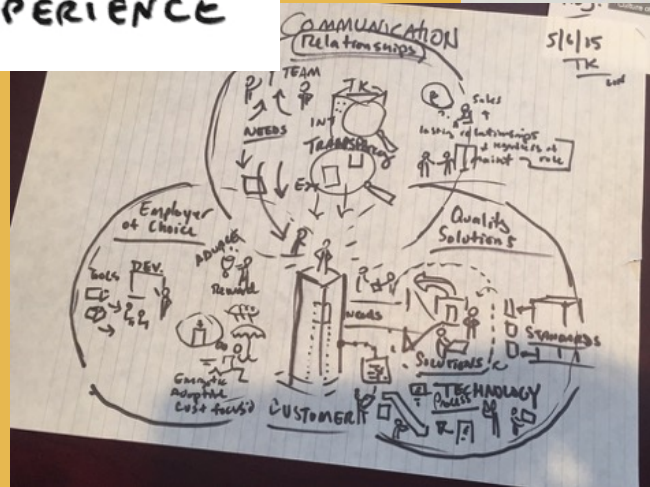 PERIENCE
COMMUNICATION
Relationships
5/6/15
TK
TEAM
TK
Sales
NEEDS
INT
TRANSPARENCY
lasting relationships
regardless of
role
Ext
Employer
of Choice
Quality
Solutions
ADVANCE
GOALS
DEV.
Reward
NEEDS
STANDARDS
SOLUTIONS
Energetic
Adaptive
Cust focus'd
CUSTOMER
TECHNOLOGY
Process